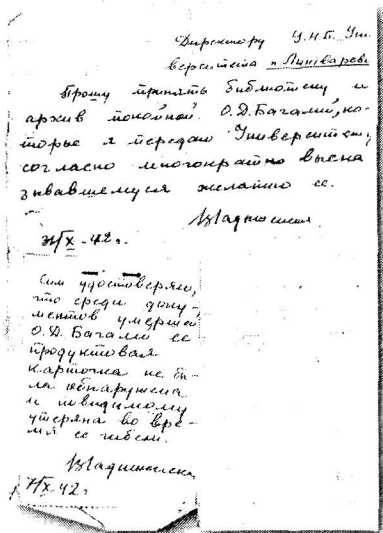 Директору У.Н.Б. Уни
верситета
Прошу принять библиотеку и
архив покойной О.Д. Багалий, ко-
торые я передаю Университету
согласно многократно выска
зывавшемуся желанию ее.
X-42 г.
Сим удостоверяю,
что среди доку-
ментов умершей
О.Д. Багалий ее
продуктовая
карточка не бы-
ла обнаружена
и повидимому
утеряна во вре-
мя ее гибели.
X-42 г